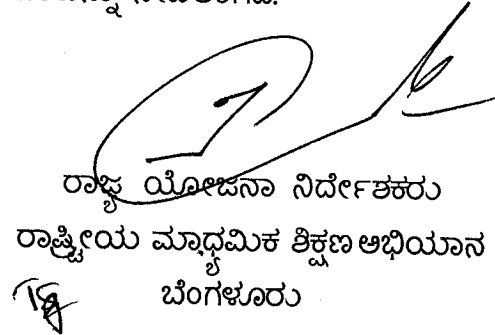 ರಾಜ್ಯ ಯೋಜನಾ ನಿರ್ದೇಶಕರು
ರಾಷ್ಟ್ರೀಯ ಮಾಧ್ಯಮಿಕ ಶಿಕ್ಷಣ ಅಭಿಯಾನ
ಬೆಂಗಳೂರು